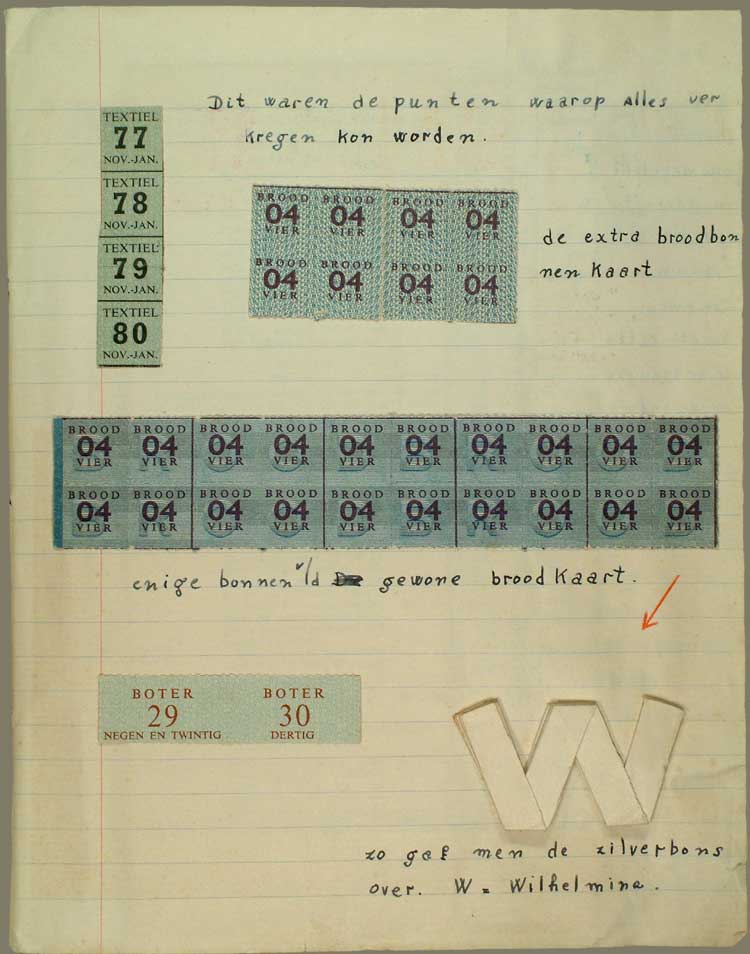 Dit waren de punten waarop Alles ver
kregen kon worden.
TEXTIEL
77
NOV.-JAN.
TEXTIEL
78
NOV.-JAN.
TEXTIEL
79
NOV.-JAN.
TEXTIEL
80
NOV.-JAN.
BROOD BROOD BROOD BROOD
04 04 04 04
VIER VIER VIER VIER
BROOD BROOD BROOD BROOD
04 04 04 04
VIER VIER VIER VIER
de extra broodbon
nen Kaart
BROOD BROOD BROOD BROOD BROOD BROOD BROOD BROOD BROOD BROOD
04 04 04 04 04 04 04 04 04 04
VIER VIER VIER VIER VIER VIER VIER VIER VIER VIER
BROOD BROOD BROOD BROOD BROOD BROOD BROOD BROOD BROOD BROOD
04 04 04 04 04 04 04 04 04 04
VIER VIER VIER VIER VIER VIER VIER VIER VIER VIER
enige bonnen v/d gewone broodKaart.
BOTER BOTER
29 30
NEGEN EN TWINTIG DERTIG
W
zo gaf men de zilverbons
over. W = Wilhelmina.